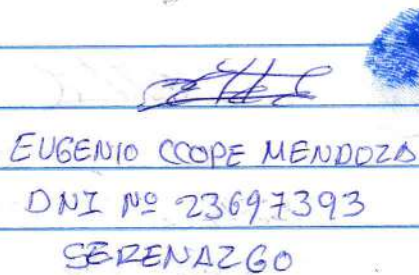 EUGENIO CCOPE MENDOZA
DNI Nº 23697393
SERENAZGO